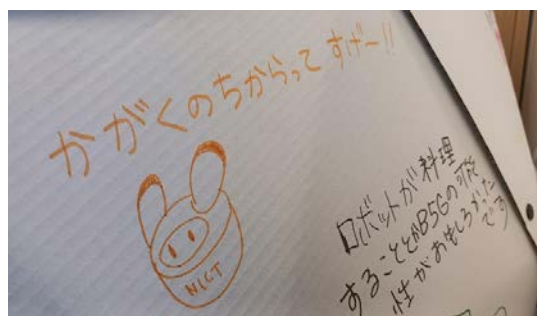 かがくのちからってすげー!!
NICT
ロボットが料理
することとかB5Gの可能
性がおもしろかった
です